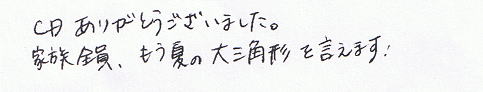 CDありがとうございました。
家族全員、もう夏の大三角形を言えます!